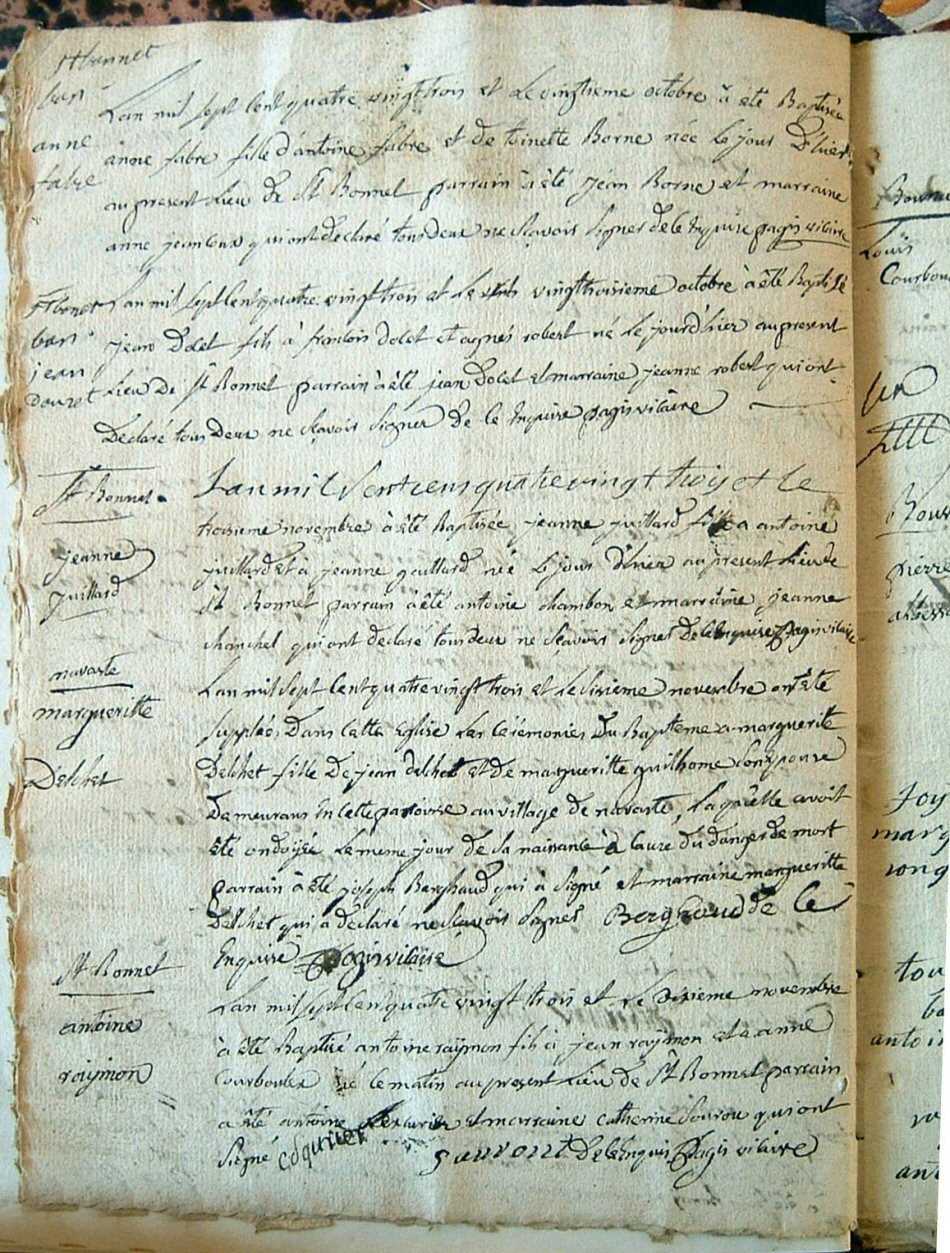 St bonnet
ban
anne
fabre
Lan mil sept cent quatre vingt trois et Le vingtieme octobre à eté Baptisée
anne fabre fille d'antoine fabre et de toinette Borne née Le jour D'hier
au present Lieu De St Bonnet parrain à été jean Borne et marraine
anne qui ont declaré tous deux ne sçavoir signer de ce Enquise pagis vilaire
St bonet
ban
jean
douzet
Lan mil sept cent quatre vingt trois et Le vingt troisieme octobre à été Baptisé
jean Dolet fils à francois dolet et agnés robert né Le jour d'hier au present
Lieu De St Bonnet parrain à été jean dolet et marraine jeanne robert qui ont
Declaré tous Deux ne sçavoir signer De ce Enquise pagis vilaire
St Bonnet
jeanne
juillard
Lan mil sept cens quatre vingt trois et Le
troisieme novembre à été Baptisée jeanne juillard fille a antoine
juillard et a jeanne gaillard née Le jour D'hier au present Lieu de
St Bonnet parrain à été antoine chambon et marraine jeanne
chanchel qui ont declaré tous deux ne sçavoir signer de ce Enquise pagis vilaire
navaste
margueritte
Delchet
Lan mil sept cent quatre vingt trois et Le sixieme novembre ont été
supplées Dans cette Eglise Les cérémonies Du Bapteme a marguerite
Delchet fille De jean delchet et de margueritte guilhome son epouse
Demeurans En cette paroisse au village de navaste, Laquelle avoit
été ondoyée Le meme jour de sa naissance à cause du danger de mort
parrain à été joseph Berghaud qui à signé et marraine margueritte
Delchet qui a déclaré ne sçavoir signer Berghaud de ce
Enquise pagis vilaire
St Bonnet
antoine
raymon
Lan mil sept cen quatre vingt trois et Le Dixieme novembre
à été Baptisé antoine raymon fils à jean raymon et a anne
Courboulex né Le matin au present Lieu de St Bonnet parrain
à été antoine et marraine catherine qui ont
signé de ce Enquis pagis vilaire
Louis
pierre